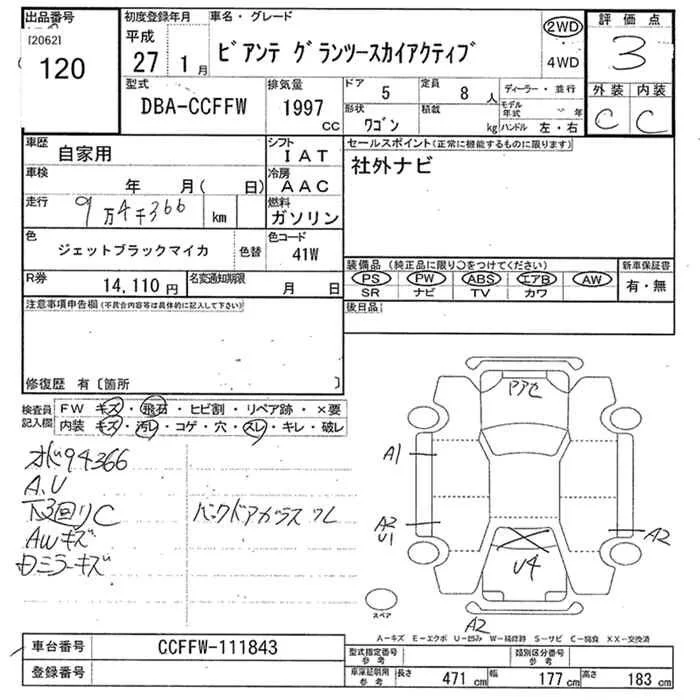 出品番号
[2062]
120
初度登録年月
平成
27 1月
車名・グレード
ビアンテ グランツースカイアクティブ
2WD
4WD
評価点
3
外装 内装
C C
型式
DBA-CCFFW
排気量
1997
cc
ドア
5
定員
8 人
形状
ワゴン
積載
kg
ディーラー・並行
モデル年式 年
ハンドル 左・右
車歴
自家用
シフト
IAT
車検
年 月( 日)
冷房
AAC
走行
9万4千366 km
燃料
ガソリン
色
ジェットブラックマイカ
色替
色コード
41W
R券
14,110 円
名変通知期限
月 日
セールスポイント(正常に機能するものに限ります)
社外ナビ
装備品(純正品に限り○をつけてください)
PS PW ABS エアB AW
SR ナビ TV カワ
新車保証書
有・無
後日品
注意事項申告欄(不具合内容等は具体的に記入して下さい)
修復歴 有〔箇所 〕
検査員記入欄
FW キズ・飛石・ヒビ割・リペア跡・×要
内装 キズ・汚レ・コゲ・穴・スレ・キレ・破レ
94366
A.U
下3回りC
AWキズ
ミラーキズ
バックドアガラスワレ
アアセ
A1
A2
U1
A2
U4
A2
スペア
A−キズ E−エクボ U−凹み W−補修跡 S−サビ C−腐食 XX−交換済
車台番号
CCFFW-111843
登録番号
型式指定番号
参考
類別区分番号
参考
車庫証明用
参考
長さ 471 cm 幅 177 cm 高さ 183 cm